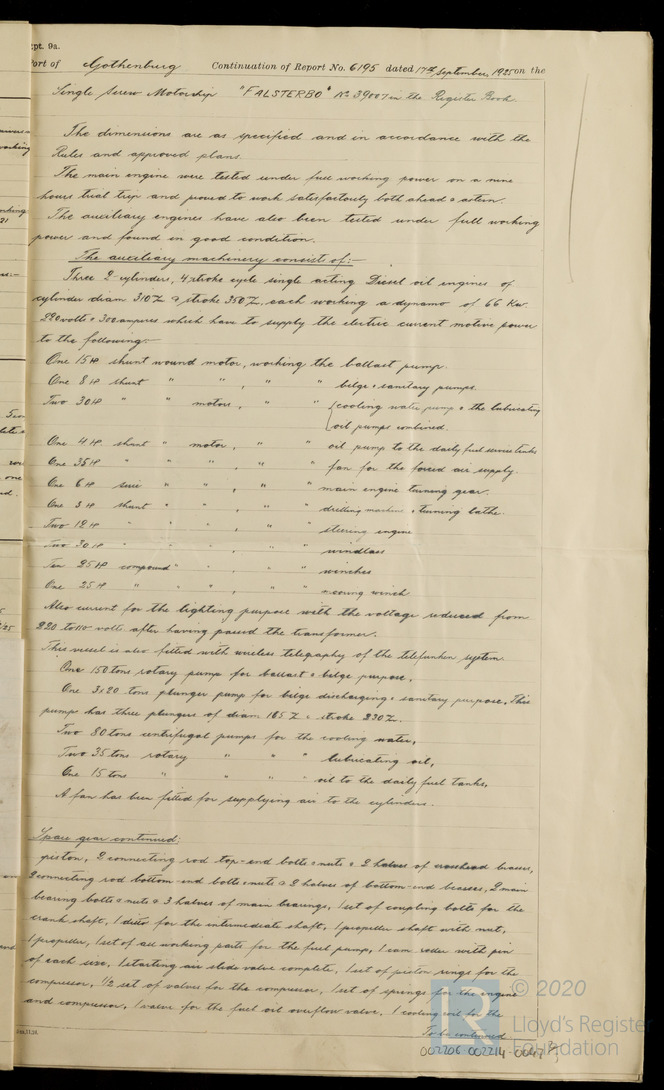 Rpt. 9a.
Port of Gothenburg Continuation of Report No. 6195 dated 17th September, 1925 on the
Single Screw Motorship "FALSTERBO" No 39007 in the Register Book.
The dimensions are as specified and in accordance with the
Rules and approved plans.
The main engine were tested under full working power on a nine
hours trial trip and proved to work satisfactorily both ahead & astern.
The auxiliary engines have also been tested under full working
power and found in good condition.
The auxiliary machinery consists of:-
Three 2-cylinders, 4 stroke cycle single acting Diesel oil engines of
cylinder diam 310 & stroke 350, each working a dynamo of 66 Kw.
220 volts & 300 amperes which have to supply the electric current motive power
to the following:-
One 15 HP shunt wound motor, working the ballast pump.
One 8 HP shunt " " , " " bilge & sanitary pumps.
Two 30 HP " " motors, " " { cooling water pump & the lubricating
oil pumps combined.
One 4 HP shunt " motor, " " oil pump to the daily fuel service tanks
One 35 HP " " " , " " fan for the forced air supply.
One 6 HP serie " " , " " main engine turning gear.
One 3 HP shunt " " , " " drilling machine & turning lathe.
Two 12 HP " " " , " " steering engine
Two 30 HP " " " , " " windlass
Ten 25 HP compound " " , " " winches
One 25 HP " " " , " " winch
Also current for the lighting purpose with the voltage reduced from
220 to 110 volts after having passed the transformer.
This vessel is also fitted with wireless telegraphy of the telefunken system.
One 150 tons rotary pump for ballast & bilge purpose.
One 3x20 tons plunger pump for bilge discharging & sanitary purpose. This
pump has three plungers of diam 165 & stroke 230.
Two 80 tons centrifugal pumps for the cooling water,
Two 35 tons rotary " " " lubricating oil,
One 15 tons " " " oil to the daily fuel tanks,
A fan has been fitted for supplying air to the cylinders.
Spare gear continued:
piston, 2 connecting rod top-end bolts & nuts & 2 halves of crosshead brasses,
2 connecting rod bottom-end bolts & nuts & 2 halves of bottom-end brasses, 2 main
bearing bolts & nuts & 3 halves of main bearings, 1 set of coupling bolts for the
crank shaft, 1 ditto for the intermediate shaft, 1 propeller shaft with nut,
1 propeller, 1 set of all working parts for the fuel pump, 1 cam roller with pin
of each size, 1 starting air slide valve complete, 1 set of piston rings for the
compressor, 1/2 set of valves for the compressor, 1 set of springs for the engine
and compressor, 1 valve for the fuel oil overflow valve, 1 cooling coil for the
To be continued
© 2020
Lloyd's Register
Foundation
002206-002214-0047